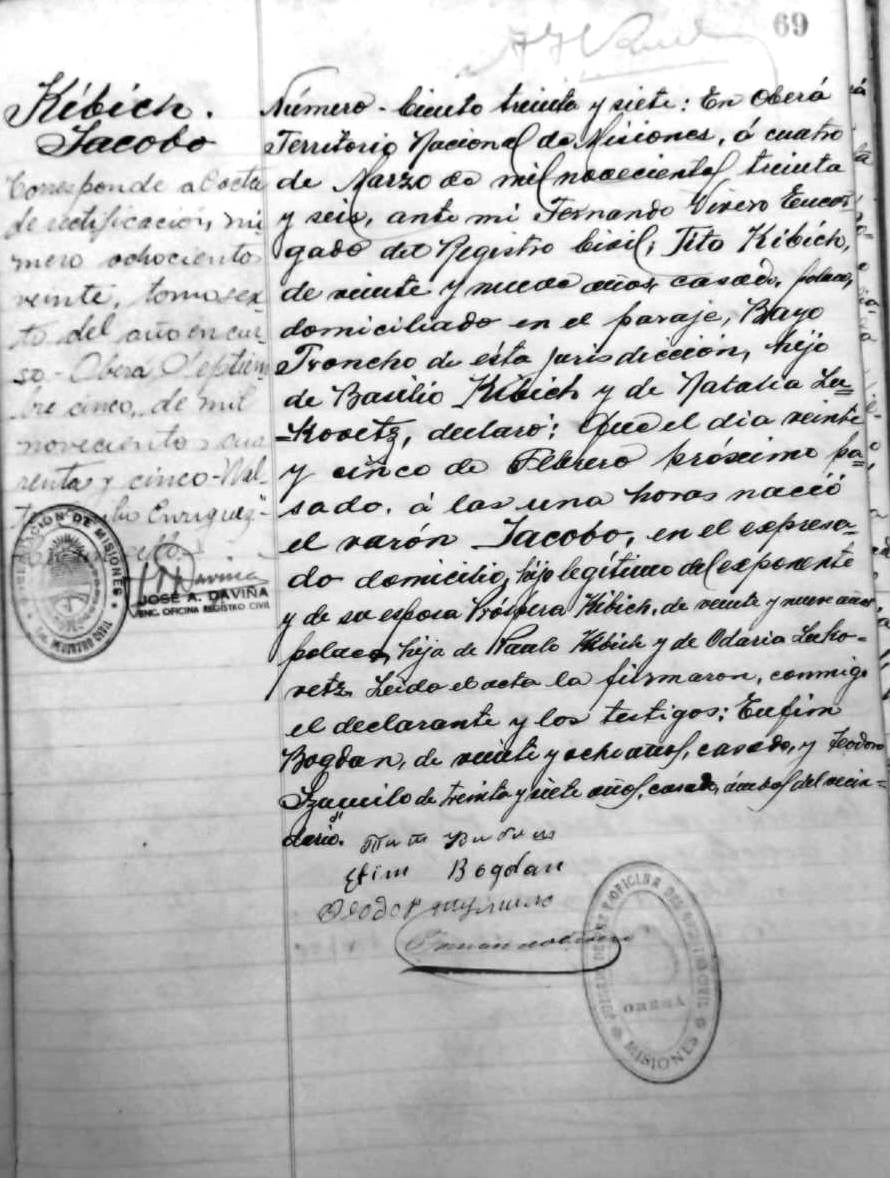 69
Kibich.
Jacobo
Corresponde al acta
de rectificación, nú
mero ochocientos
veinte, tomo sex
to del año en cur
so - Oberá Septiem
bre cinco, de mil
novecientos cua
renta y cinco -
Enriquez -
JOSE A. DAVIÑA
ENC. OFICINA REGISTRO CIVIL
DE MISIONES
Número - Ciento treinta y siete: En Oberá
Territorio Nacional de Misiones, á cuatro
de Marzo de mil novecientos treinta
y seis, ante mi Fernando Vivero Encar-
gado del Registro Civil; Tito Kibich,
de veinte y nueve años, casado, polaco,
domiciliado en el paraje, Bayo
Troncho de ésta jurisdicción, hijo
de Basilio Kibich y de Natalia Lu=
=Kovetz, declaró: Que el dia veinte
y cinco de Febrero próximo pa=
sado, á las una horas nació
el varón Jacobo, en el expresa-
do domicilio, hijo legítimo del exponente
y de su esposa Próspera Kibich, de veinte y nueve años
polaca, hija de Paulo Kibich y de Odaria Luko-
vetz. Leido el acta la firmaron, conmigo
el declarante y los testigos; Eufim
Bogdan, de veinte y ocho años, casado, y Teodoro
de treinta y siete años, casado, ámbos del vecin=
dario.
Efim Bogdan
JUZGADO DE PAZ Y OFICINA DEL REGISTRO CIVIL
MISIONES